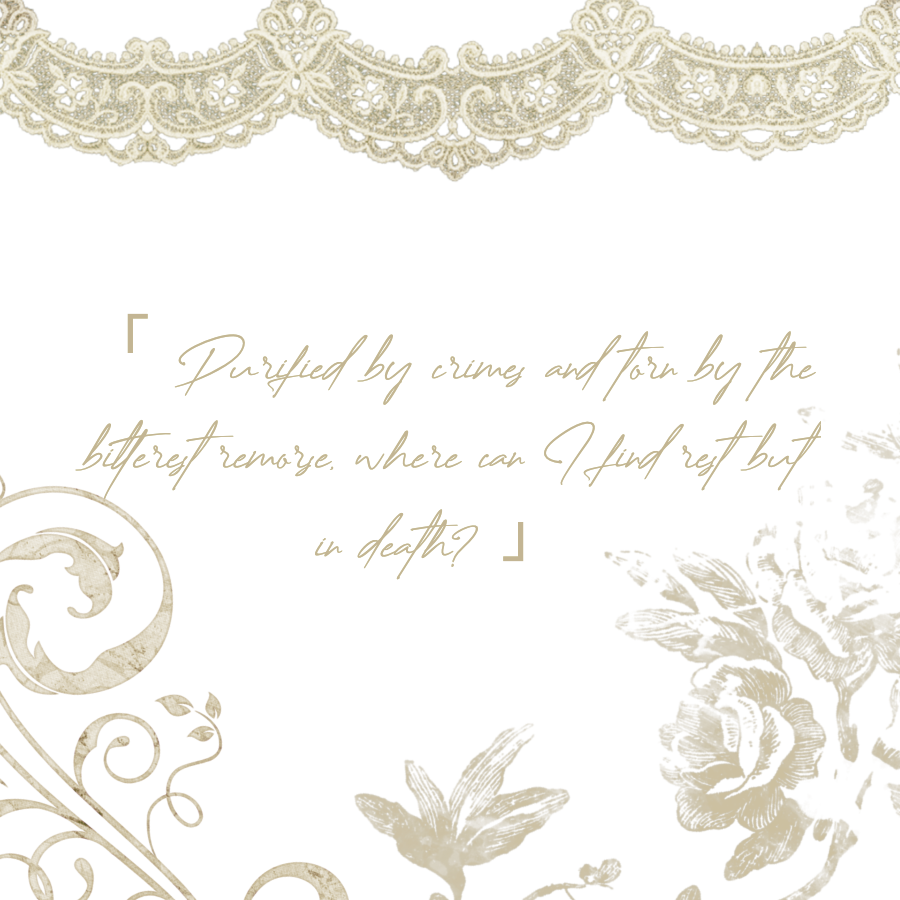 「 Purified by crimes and torn by the
bitterest remorse, where can I find rest but
in death? 」